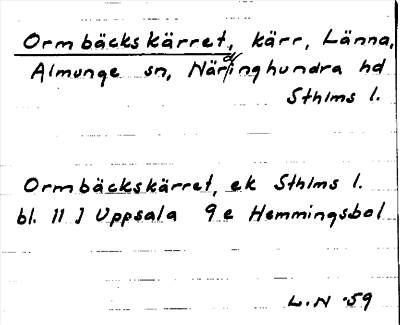 Ormbäckskärret, kärr, Länna,
Almunge sn, Närdinghundra hd
Sthlms l.
Ormbäckskärret, ek Sthlms l.
bl. 11 J Uppsala 9e Hemmingsbol
L.N -59